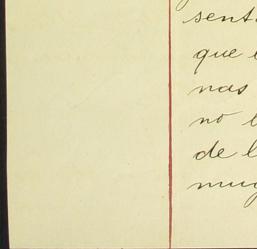 sent
que
nas
no
de l
mug